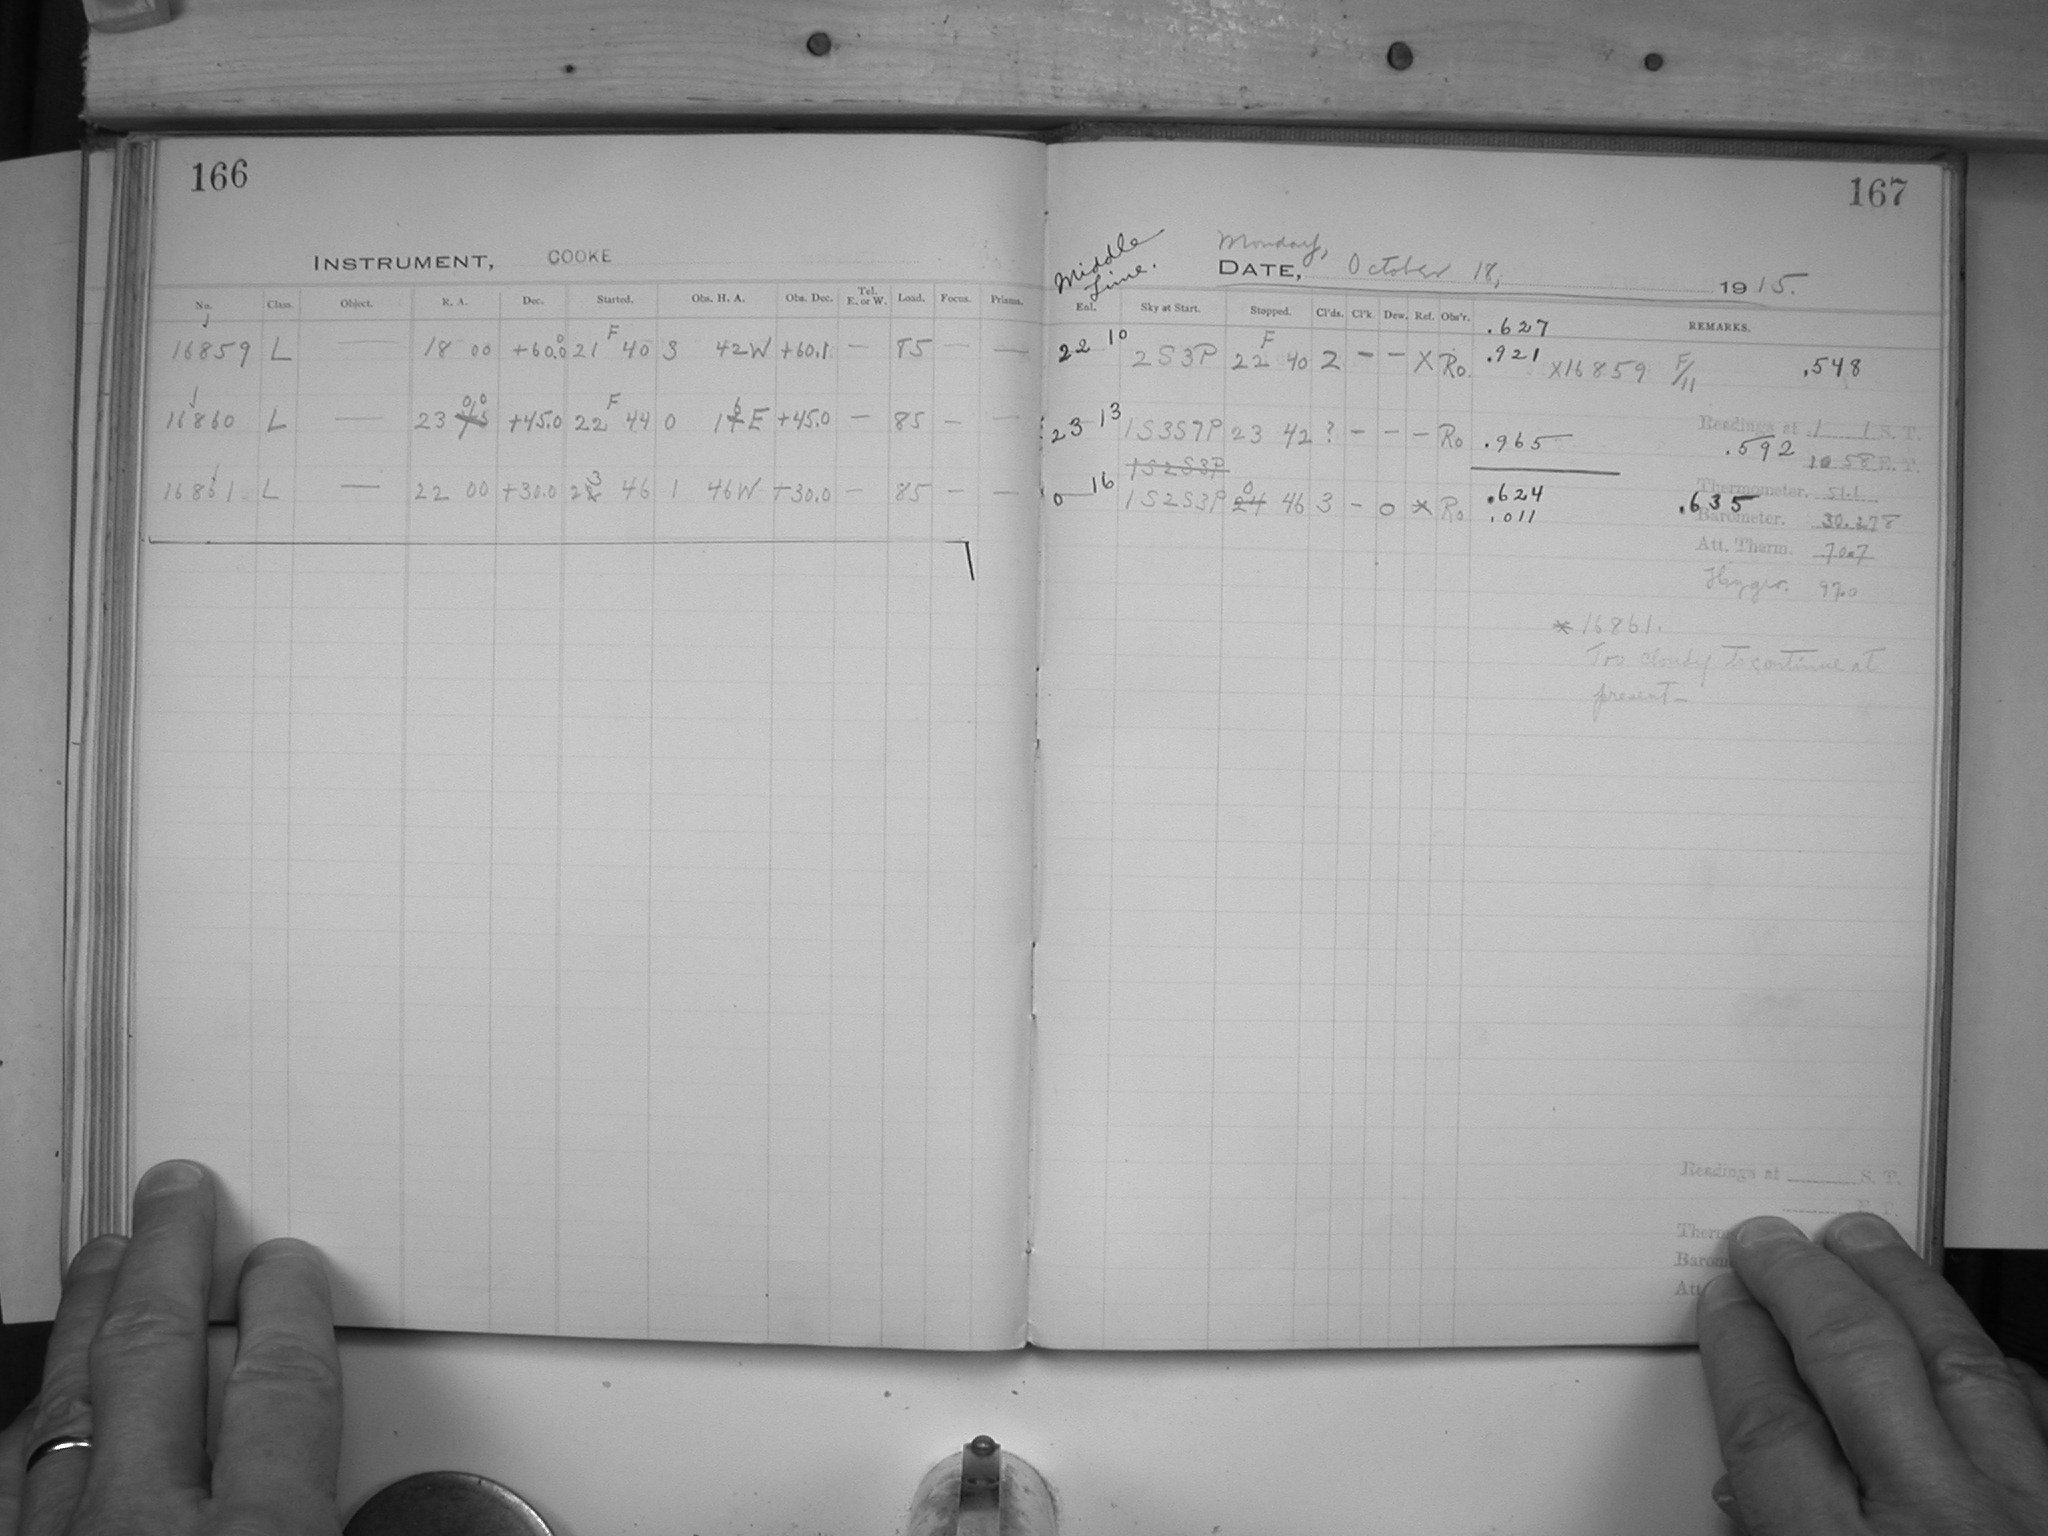 166
INSTRUMENT, COOKE
No. Class. Object. R. A. Dec. Started. Obs. H. A. Obs. Dec. Tel. E. or W. Load. Focus. Prisms.
16859 L — 18 00 +60.0 21 F 40 3 42W +60.1 — 85 — —
16860 L — 23 00 +45.0 22 F 44 0 16 E +45.0 — 85 — —
16861 L — 22 00 +30.0 23 46 1 46W +30.0 — 85 — —
167
Middle
Time.
Monday,
DATE, October 18, 1915.
Enl. Sky at Start. Stopped. Cl'ds. Cl'k. Dew. Ref. Obs'r. REMARKS.
.627
22 10 2S3P 22 F 40 2 — — X Ro. .921 X16859 F/11 .548
Readings at 1 1 S. T.
23 13 1S3S7P 23 42 ? — — — Ro .965 .592
10 58 E. T.
1S2S3P
Thermometer. 51.1
0 16 1S2S3P 0 46 3 — 0 * Ro .624 .635
.011
Barometer. 30.278
Att. Therm. 70.7
Hygro. 97.0
* 16861.
Too cloudy to continue at
present—
Readings at S. T.
E. T.
Therm
Barom
Att